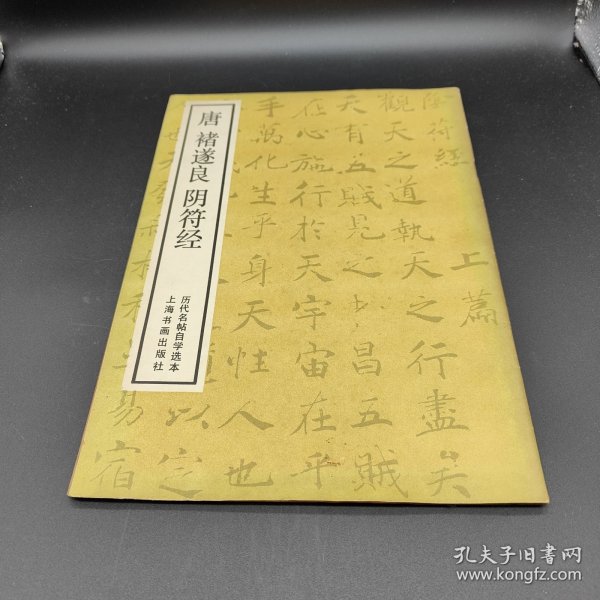 唐 褚遂良 阴符经
历代名帖自学选本
上海书画出版社
阴符经上篇
观天之道执天之行尽矣
天有五贼见之者昌五贼
在心施行于天宇宙在乎
手万化生乎身天性人也
孔夫子旧书网
www.kongfz.com